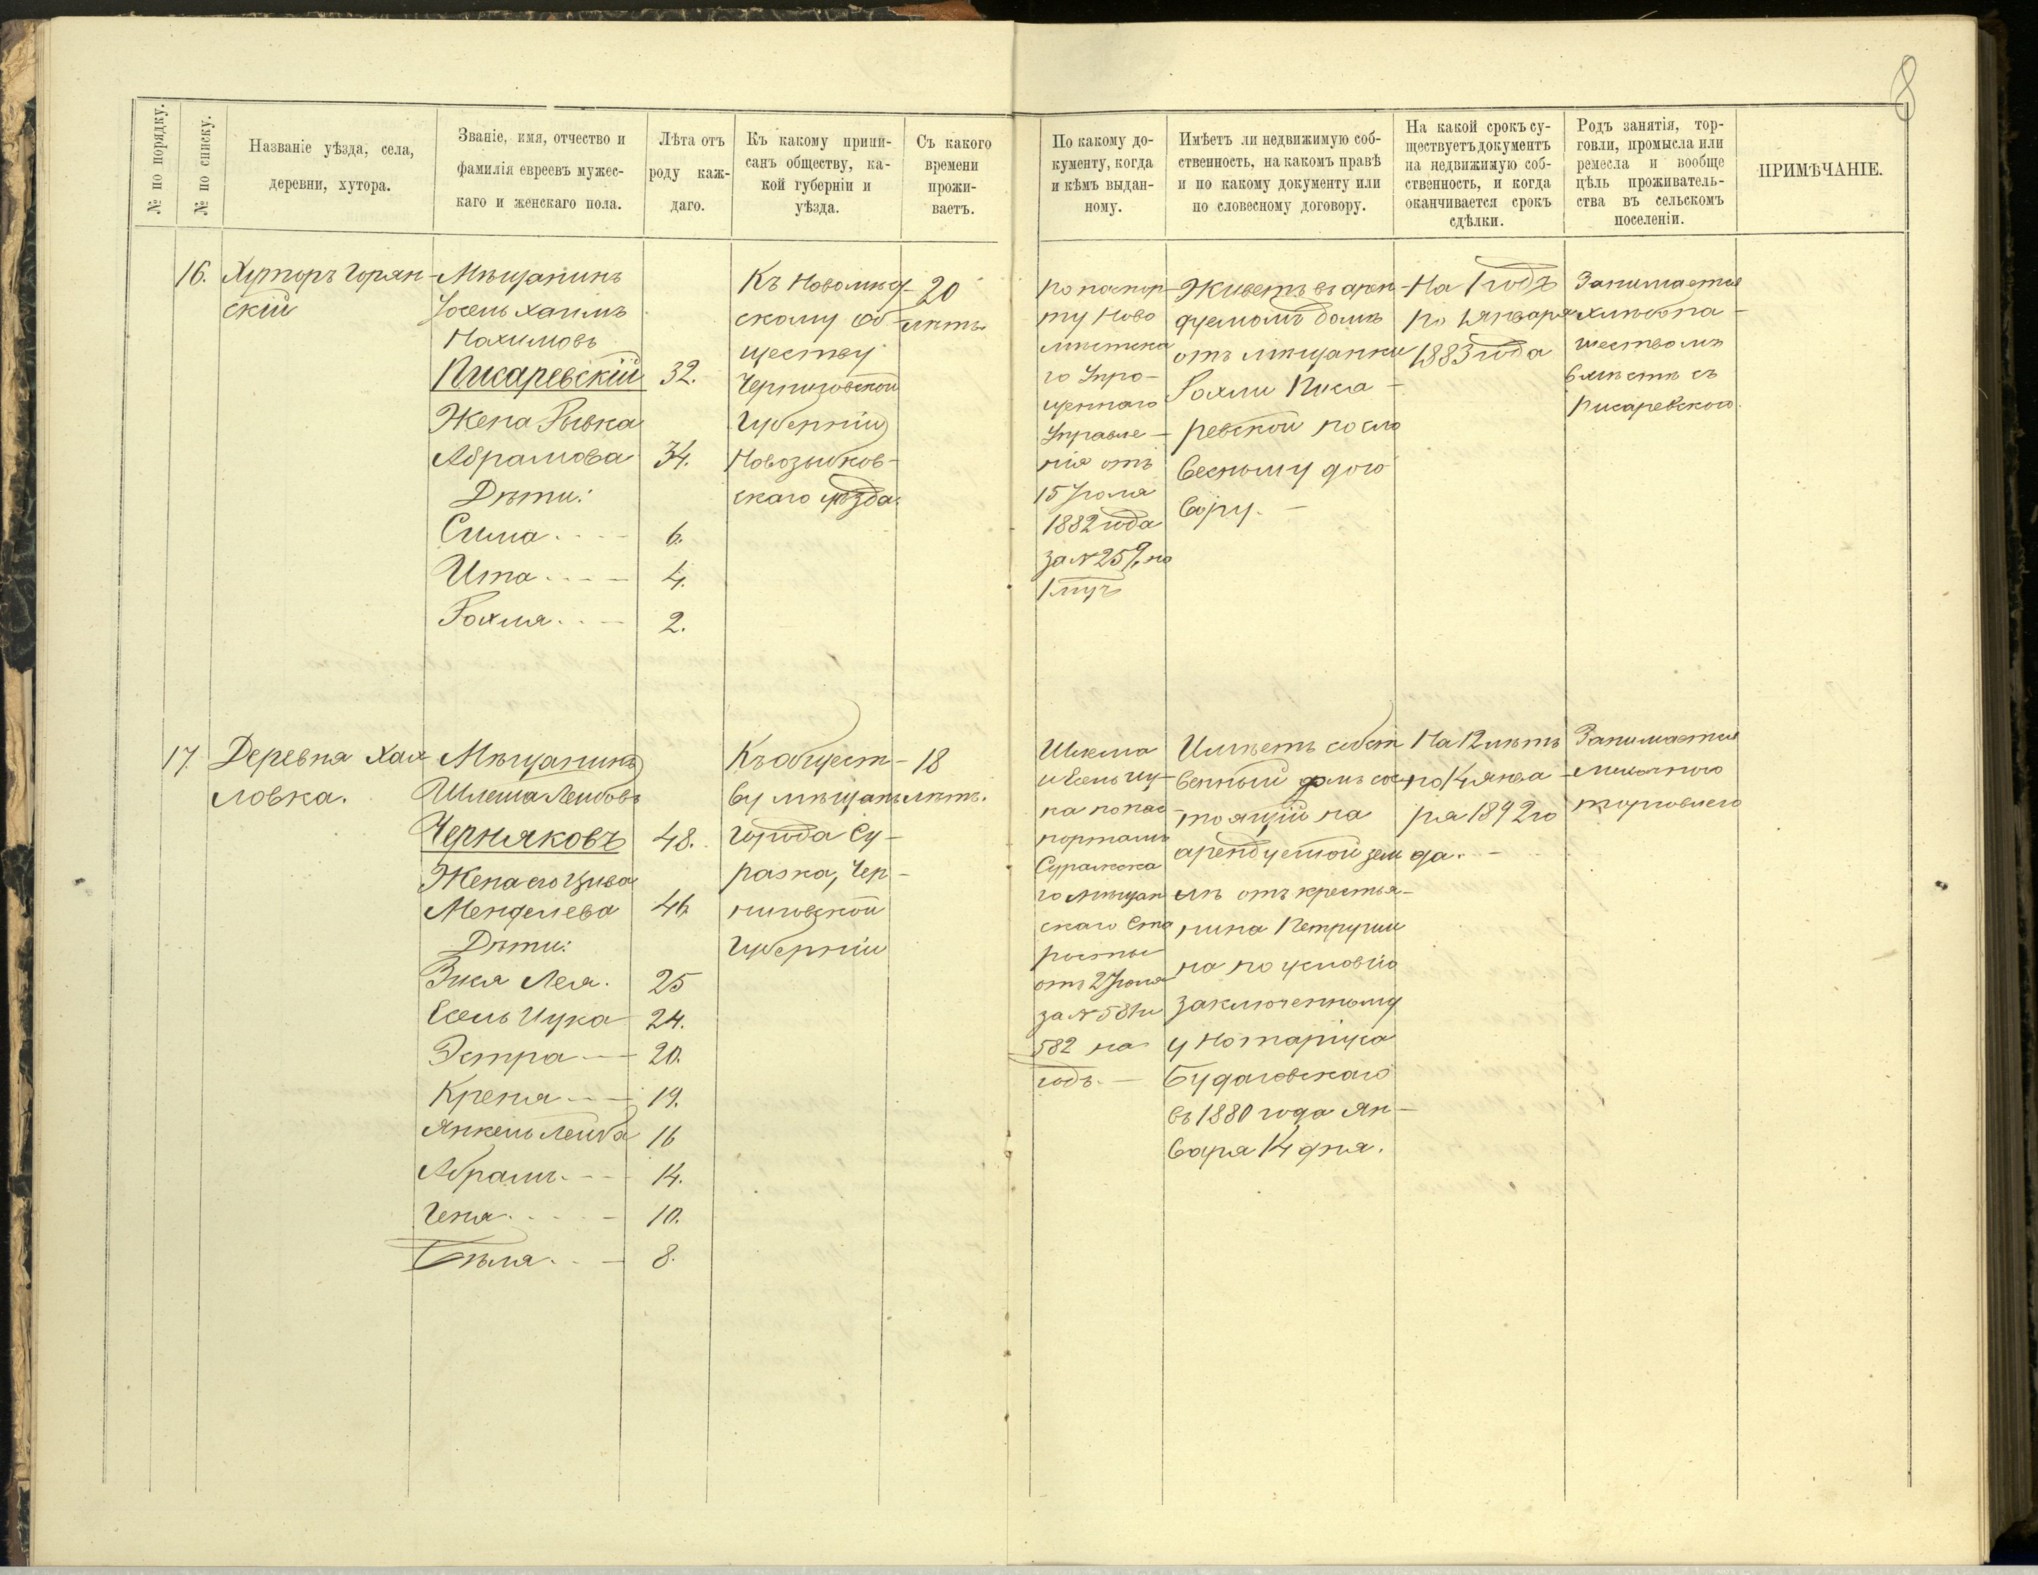 8
№ по порядку.
№ по списку.
Названіе уѣзда, села,
деревни, хутора.
Званіе, имя, отчество и
фамилія евреевъ мужес-
каго и женскаго пола.
Лѣта отъ
роду каж-
даго.
Къ какому припи-
санъ обществу, ка-
кой губерніи и
уѣзда.
Съ какого
времени
прожи-
ваетъ.
По какому до-
кументу, когда
и кѣмъ выдан-
ному.
Имѣетъ ли недвижимую соб-
ственность, на какомъ правѣ
и по какому документу или
по словесному договору.
На какой срокъ су-
ществуетъ документъ
на недвижимую соб-
ственность, и когда
оканчивается срокъ
сдѣлки.
Родъ занятія, тор-
говли, промысла или
ремесла и вообще
цѣль проживатель-
ства въ сельскомъ
поселеніи.
ПРИМѢЧАНІЕ.
16.
Хуторъ Горян-
скій
Мѣщанинъ
Іосель Хаимъ
Нахимовъ
Писаревскій 32.
Жена Рывка
Абрамова 34.
Дѣти:
Сима 6.
Ита 4.
Рохля 2.
Къ Новомѣ
скому об-
ществу
Черниговской
Губерніи
Новозыбков-
скаго уѣзда.
20
лѣтъ
по паспор-
ту Ново
мѣстска
го Упро-
щеннаго
Управле-
нія отъ
15 Іюля
1882 года
за №259, на
Живетъ въ арен-
дуемомъ домѣ
отъ мѣщанки
Рохли Писа-
ревской по сло
весному дого
вору. -
На 1 годъ
по 1 января
1883 года
Занимается
хлѣбопа-
шествомъ
вмѣстѣ съ
Писаревского.
17.
Деревня Хал
ловка.
Мѣщанинъ
Шлема Лейбовъ
Черняковъ 48.
Жена его Цива
Менделева 46.
Дѣти:
Лея. 25
Есель Ицка 24.
Эстра 20.
Креня 19.
Янкель Лейба 16
Абрамъ 14.
Геня 10.
Бѣля 8.
Къ общест-
ву мѣщанъ
города Су-
ража, Чер-
ниговской
Губерніи
18
лѣтъ.
Шлема
и Есель Иц-
ка по пас-
портамъ
Суражска
го мѣщан
скаго Ста
росты
отъ 2 Іюля
за № 581 и
582 на
годъ. -
Имѣетъ собст
венный домъ сос-
тоящій на
арендуемой зем
лѣ отъ крестья-
нина Петруши
на по условію
заключенному
у Нотаріуса
Будаговскаго
въ 1880 года Ян-
варя 14 дня.
На 12 лѣтъ
по 14 янва
ря 1892 го
да. -
Занимается
мелочного
торговлего